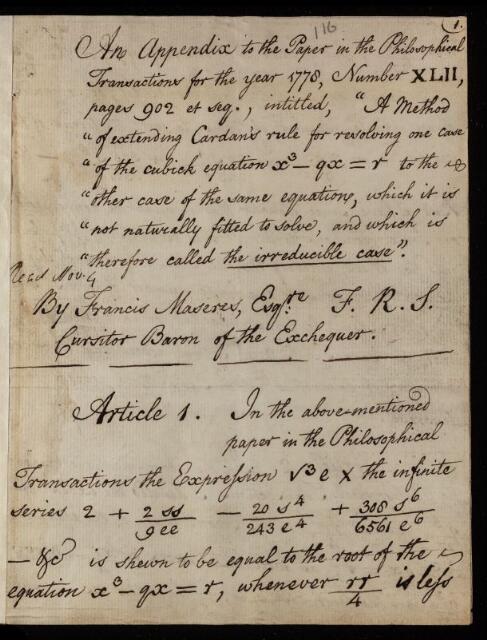 116
1.
An Appendix to the Paper in the Philosophical
Transactions for the year 1778, Number XLII,
pages 902 et seq., intitled, "A Method
"of extending Cardan's rule for resolving one case
"of the cubick equation x³ - qx = r to the
"other case of the same equation, which it is
"not naturally fitted to solve, and which is
"therefore called the irreducible case".
Read Nov. 4
By Francis Maseres, Esqʳᵉ F. R. S.
Cursitor Baron of the Exchequer.
Article 1. In the above-mentioned
paper in the Philosophical
Transactions the Expression √³e × the infinite
series 2 + 2ss/9ee - 20s⁴/243e⁴ + 308s⁶/6561e⁶
- &c is shewn to be equal to the root of the
equation x³ - qx = r, whenever rr/4 is less